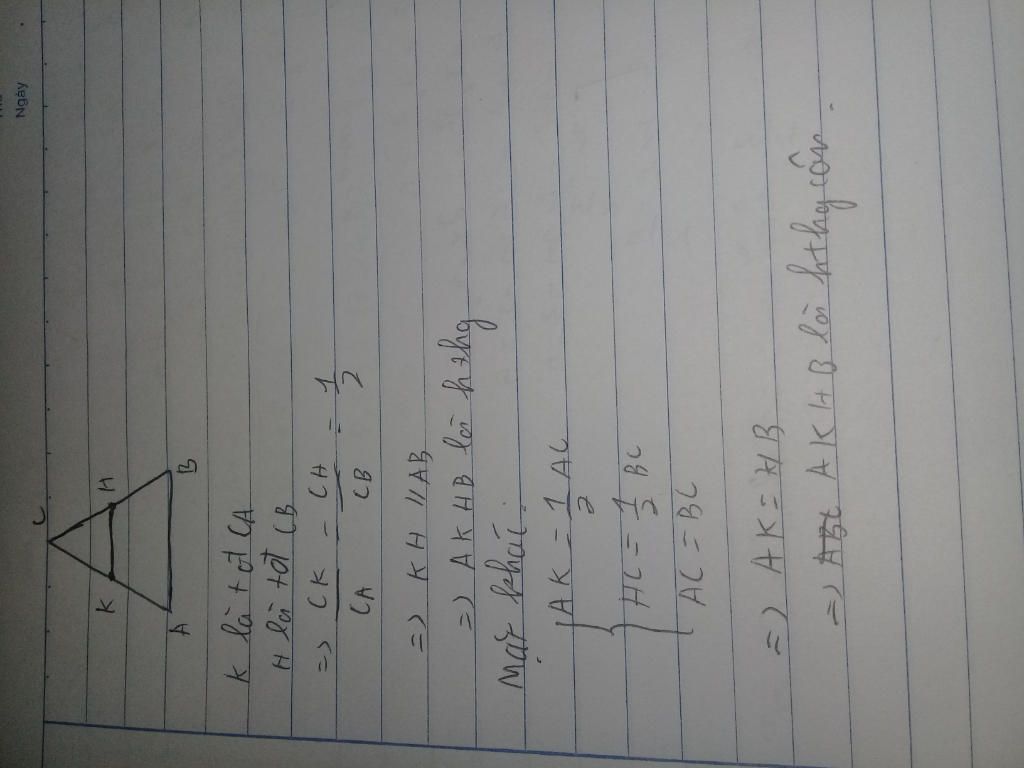 Ngày
C
K H
A B
K là tđ CA
H là tđ CB
=> CK/CA = CH/CB = 1/2
=> KH // AB
=> AKHB là hthg
Mặt khác:
{ AK = 1/2 AC
HC = 1/2 BC
AC = BC
=> AK = HB
=> AKHB là hthg cân.